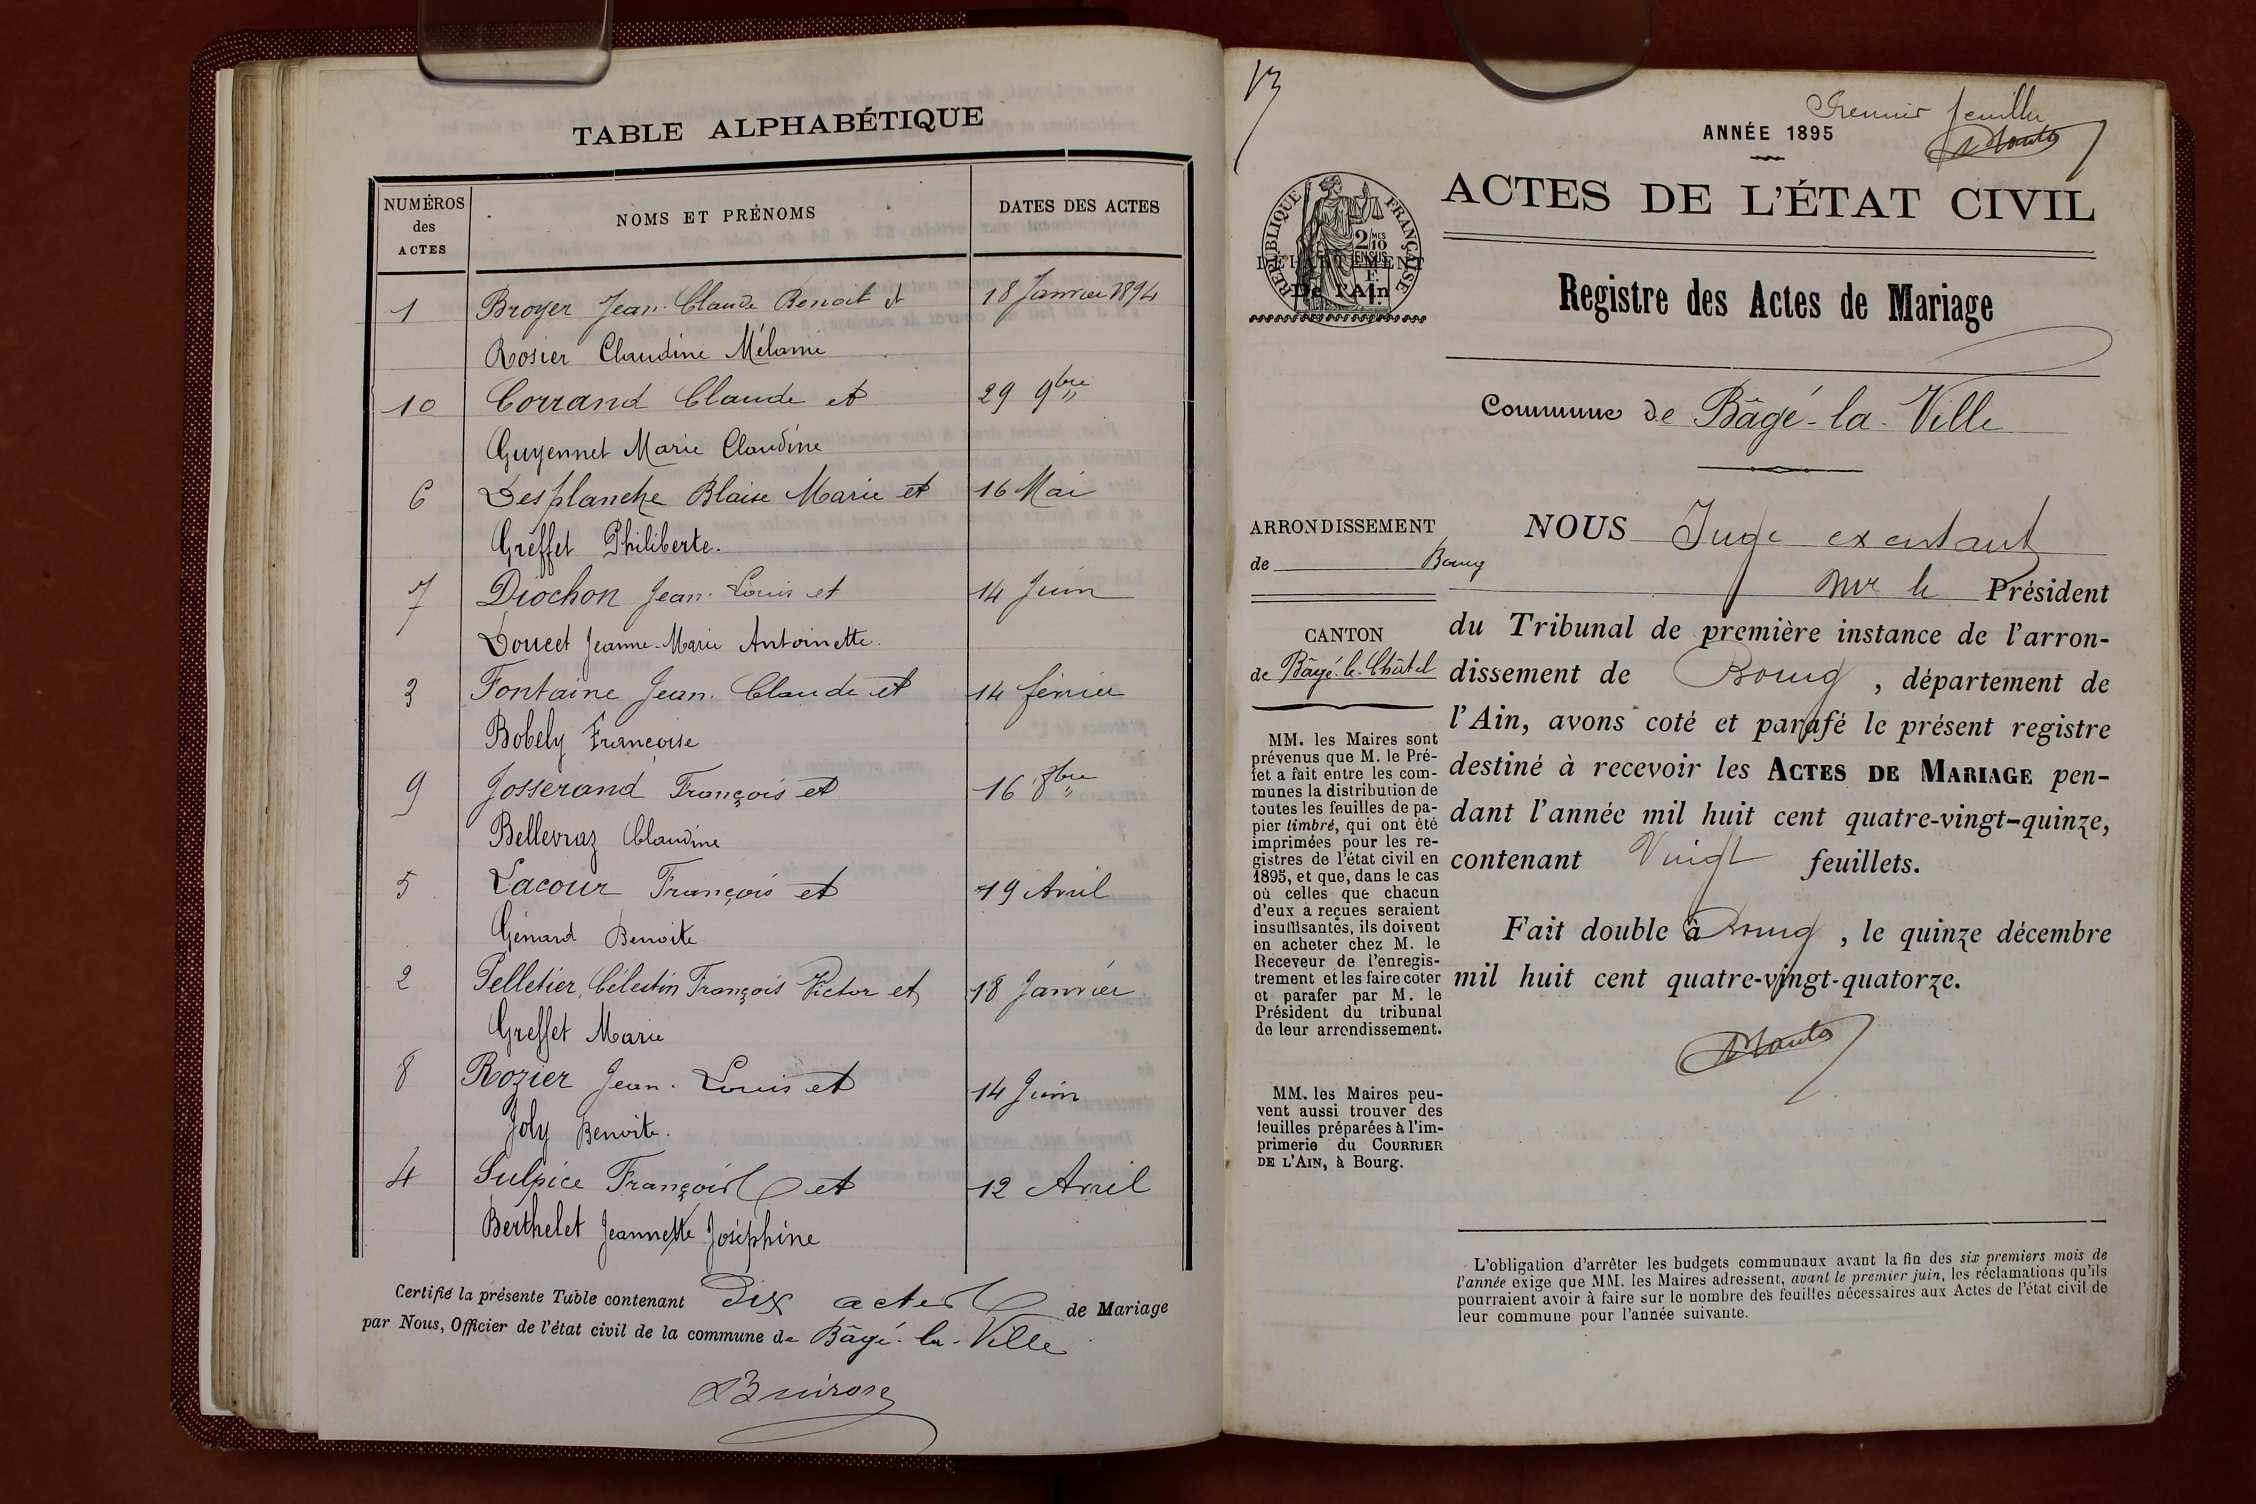 TABLE ALPHABÉTIQUE
NUMÉROS
des
ACTES
NOMS ET PRÉNOMS
DATES DES ACTES
1 Broyer Jean-Claude Benoit et 18 Janvier 1894
Rosier Claudine Mélanie
10 Corrand Claude et 29 9bre
Guyennet Marie Claudine
6 Desplanche Blaise Marie et 16 Mai
Greffet Philiberte.
7 Diochon Jean-Louis et 14 Juin
Doucet Jeanne-Marie Antoinette.
3 Fontaine Jean-Claude et 14 février
Bobely Françoise
9 Josserand François et 16 8bre
Bellevraz Claudine
5 Lacour François et 19 Avril
Génard Benoite
2 Pelletier, Célestin François Victor et 18 Janvier
Greffet Marie
8 Rozier Jean-Louis et 14 Juin
Joly Benoite.
4 Sulpice François et 12 Avril
Berthelet Jeannette Joséphine
Certifié la présente Table contenant Dix actes de Mariage
par Nous, Officier de l'état civil de la commune de Bâgé-la-Ville
Premier feuillet
ANNÉE 1895
ACTES DE L'ÉTAT CIVIL
RÉPUBLIQUE FRANÇAISE
2 MES
10
EN SUS
DÉPARTEMENT
De l'Ain
Registre des Actes de Mariage
Commune de Bâgé-la-Ville
ARRONDISSEMENT
de Bourg
CANTON
de Bâgé-le-Châtel
MM. les Maires sont
prévenus que M. le Pré-
fet a fait entre les com-
munes la distribution de
toutes les feuilles de pa-
pier timbré, qui ont été
imprimées pour les re-
gistres de l'état civil en
1895, et que, dans le cas
où celles que chacun
d'eux a reçues seraient
insuffisantes, ils doivent
en acheter chez M. le
Receveur de l'enregis-
trement et les faire coter
et parafer par M. le
Président du tribunal
de leur arrondissement.
MM. les Maires peu-
vent aussi trouver des
feuilles préparées à l'im-
primerie du COURRIER
DE L'AIN, à Bourg.
NOUS Juge
Mr le Président
du Tribunal de première instance de l'arron-
dissement de Bourg, département de
l'Ain, avons coté et parafé le présent registre
destiné à recevoir les ACTES DE MARIAGE pen-
dant l'année mil huit cent quatre-vingt-quinze,
contenant Vingt feuillets.
Fait double à Bourg, le quinze décembre
mil huit cent quatre-vingt-quatorze.
L'obligation d'arrêter les budgets communaux avant la fin des six premiers mois de
l'année exige que MM. les Maires adressent, avant le premier juin, les réclamations qu'ils
pourraient avoir à faire sur le nombre des feuilles nécessaires aux Actes de l'état civil de
leur commune pour l'année suivante.